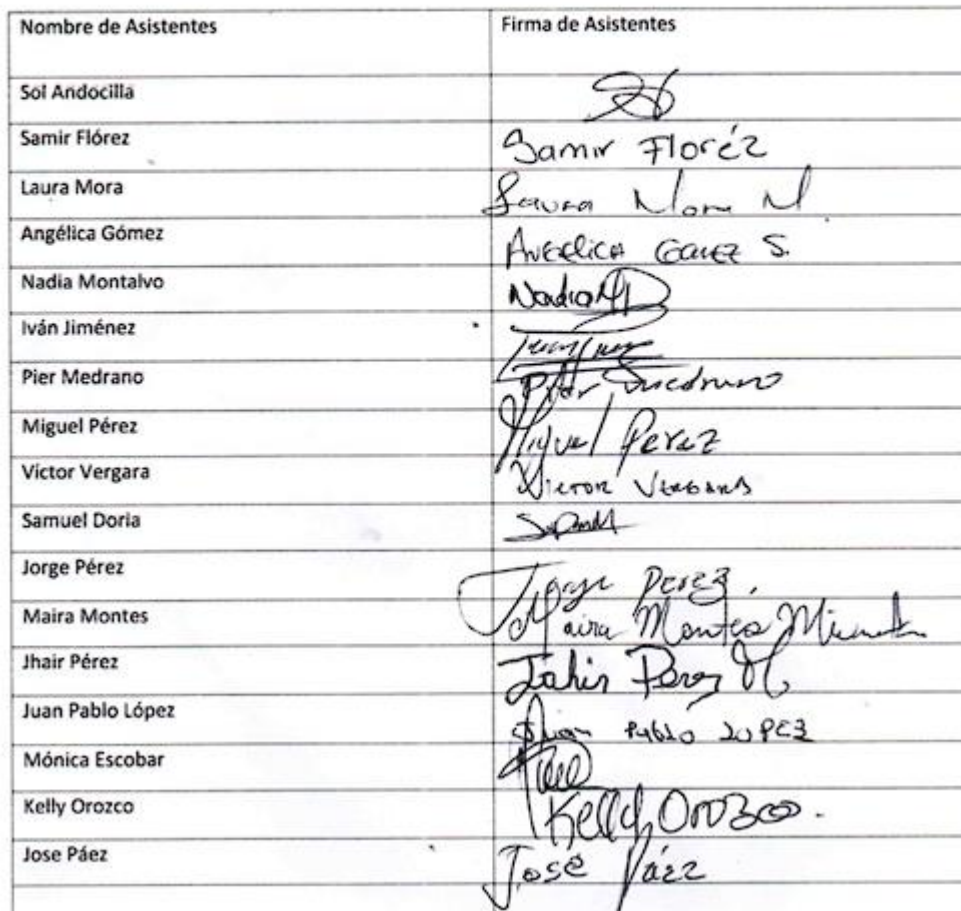 Nombre de Asistentes Firma de Asistentes
Sol Andocilla
Samir Flórez Samir Floréz
Laura Mora Laura Mora M
Angélica Gómez Angelica Gomez S.
Nadia Montalvo Nadia
Iván Jiménez
Pier Medrano Pier Medrano
Miguel Pérez Miguel Perez
Víctor Vergara Victor Vergara
Samuel Doria
Jorge Pérez Jorge Perez.
Maira Montes Maira Montes
Jhair Pérez Jahir Perez M
Juan Pablo López Juan Pablo Lopez
Mónica Escobar
Kelly Orozco Kelly Orozco.
Jose Páez José Páez